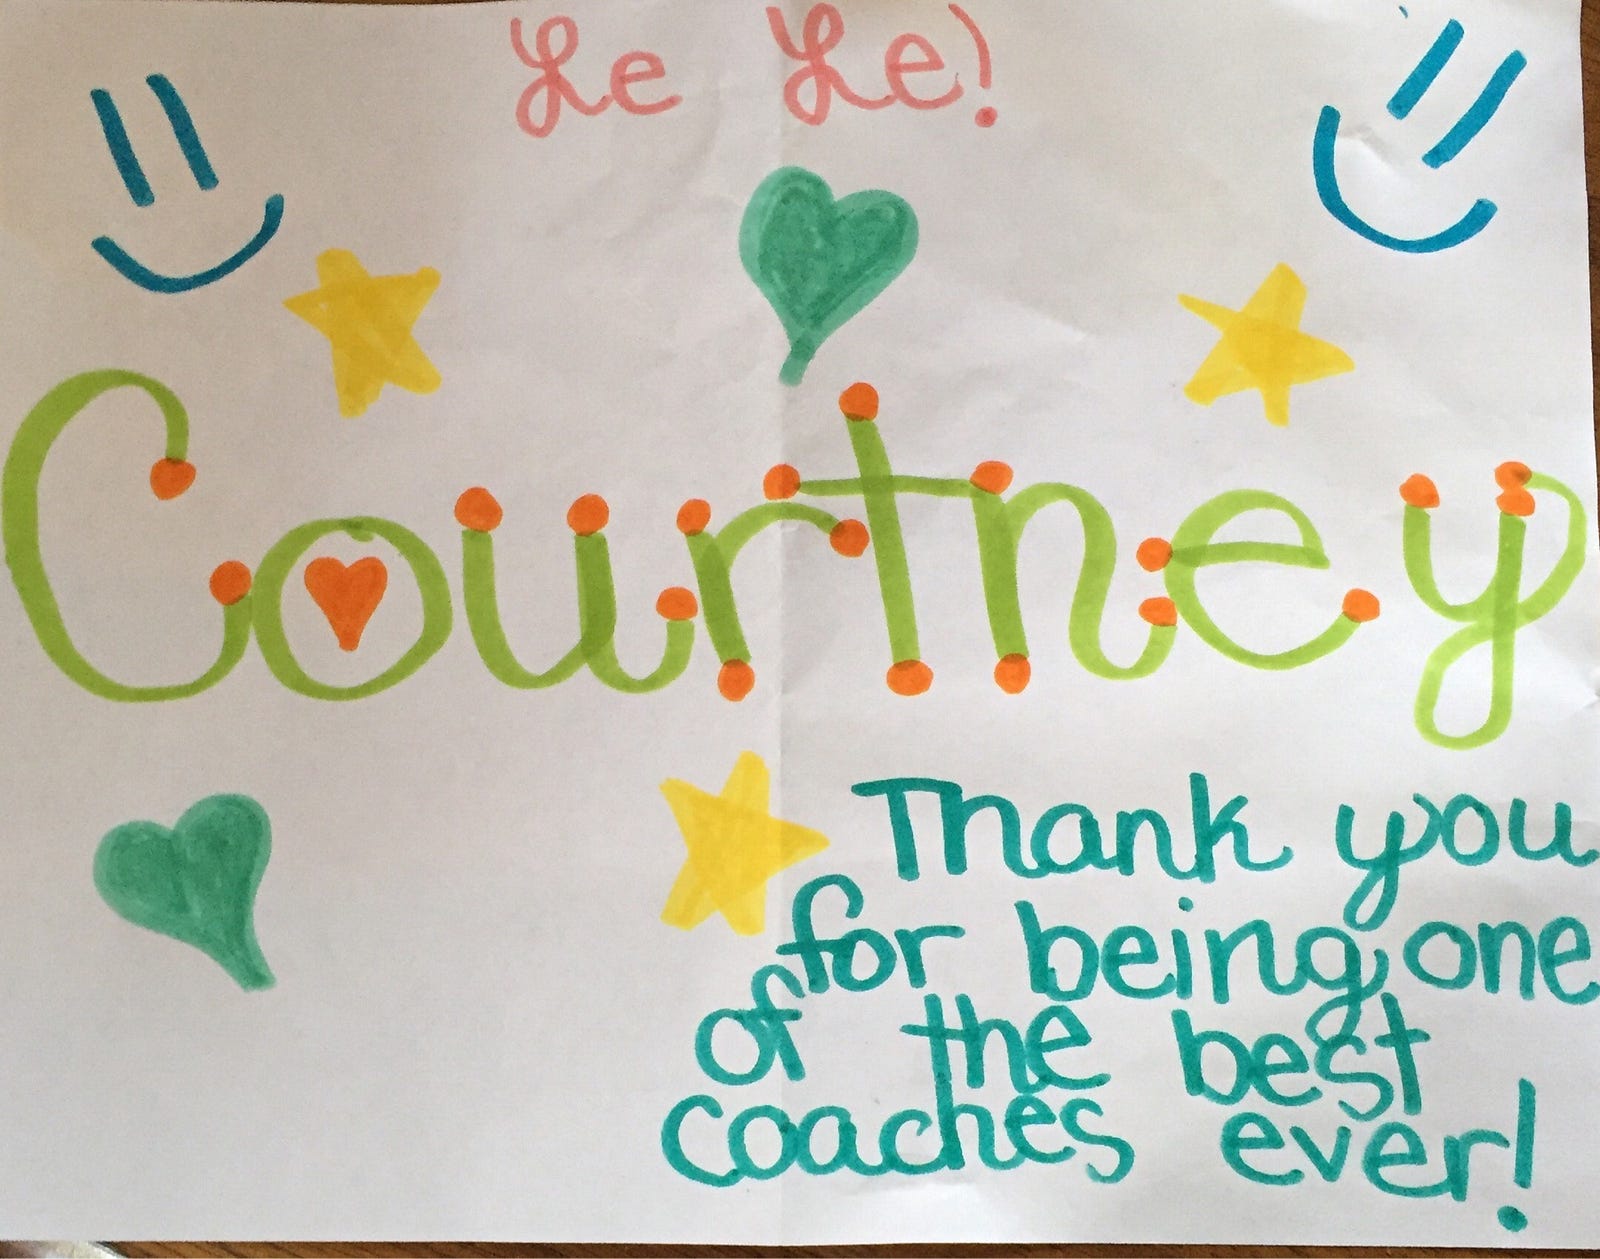 Le Le!
Courtney
Thank you
for being one
of the best
coaches ever!